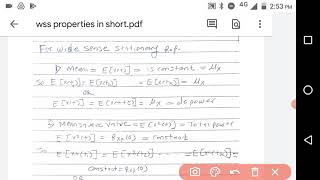 4G 2:53 PM
wss properties in short.pdf
For wide sense stationary R.P.
1) Mean = E[x(t)] = is constant = μx
So E[x(t1)] = E[x(t2)] = E[x(tn)] = μx
OR
E[x(t)] = E[x(t+τ)] = μx = dc power
2) Mean square value = E[x²(t)] = Total power
E[x²(t)] = Rxx(0) = constant
So E[x²(t1)] = E[x²(t2)] = E[x²(tn)] =
constant = Rxx(0)
OR